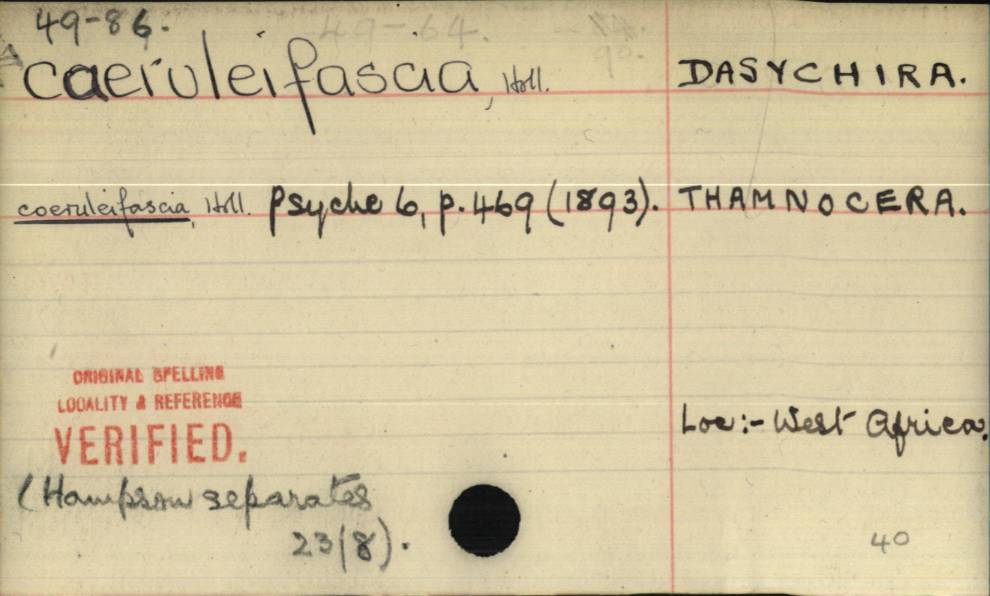 49-86. 49-64.
90.
caeruleifascia, Holl. DASYCHIRA.
coeruleifascia, Holl. Psyche 6, p. 469 (1893). THAMNOCERA.
ORIGINAL SPELLING
LOCALITY & REFERENCE
VERIFIED.
Loc:- West Africa.
(Hampson separates
23(8).
40